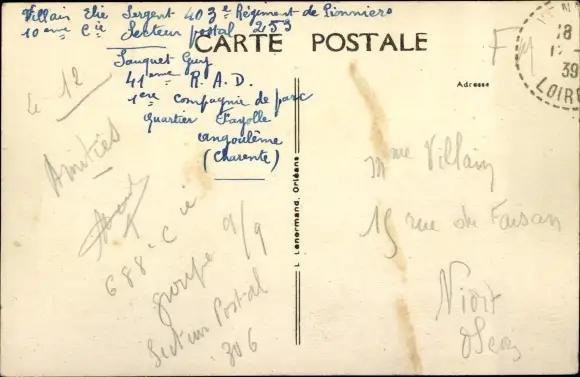 Villain Elie Sergent 403e Régiment de Pionniers
10eme Cie Secteur postal 253
CARTE POSTALE
Sauquet Guy
41eme R. A. D.
1ere compagnie de parc
quartier Fayolle
angoulême
(Charente)
Adresse
F M
18
12-
39
LOIRE
le 12
Amitiés
688e Cie
groupe 9/9
Secteur Postal
306
L. Lenormand, Orléans
Mme Villain
15 rue du Faisan
Niort